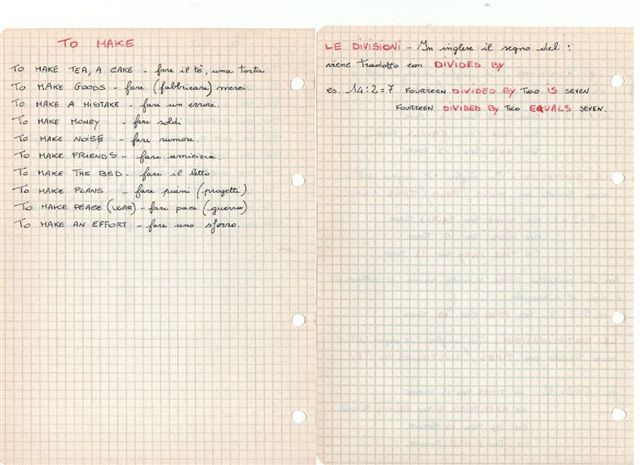 TO MAKE
TO MAKE TEA, A CAKE - fare il tè, una torta
TO MAKE GOODS - fare (fabbricare) merci.
TO MAKE A MISTAKE - fare un errore.
TO MAKE MONEY - fare soldi
TO MAKE NOISE - fare rumore.
TO MAKE FRIENDS - fare amicizia.
TO MAKE THE BED - fare il letto
TO MAKE PLANS - fare piani (progetti).
TO MAKE PEACE (WAR) - fare pace (guerra)
TO MAKE AN EFFORT - fare uno sforzo.
LE DIVISIONI - In inglese il segno del :
viene tradotto con DIVIDED BY
es. 14:2=7 FOURTEEN DIVIDED BY TWO IS SEVEN
FOURTEEN DIVIDED BY TWO EQUALS SEVEN.